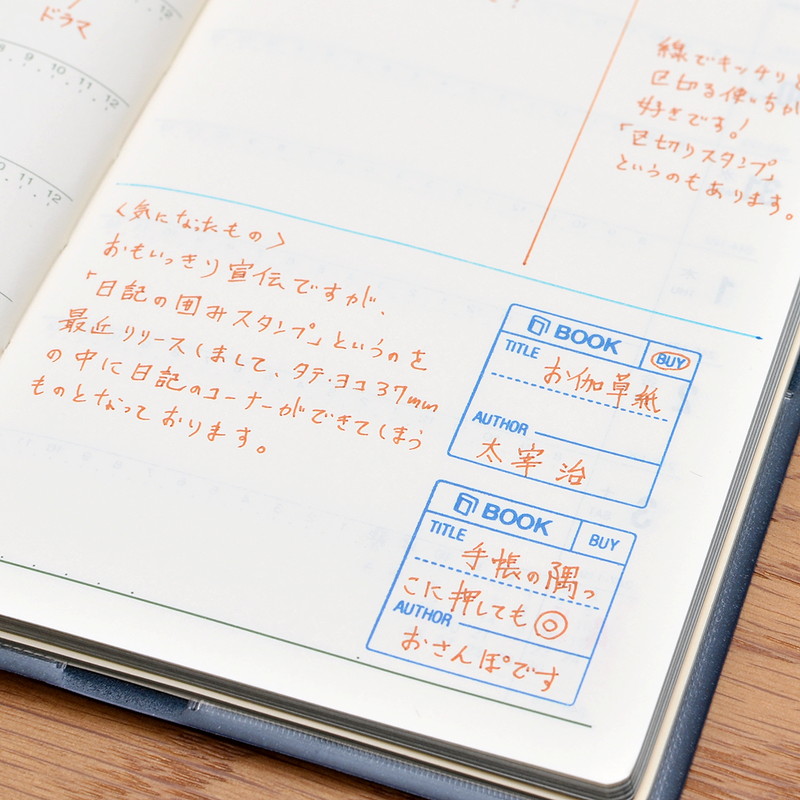 ドラマ
8 9 10 11 12
10 11 12
線でキッチリと
区切る使い方が
好きです!
「区切りスタンプ」
というのもあります。
〈気になったもの〉
おもいっきり宣伝ですが、
「日記の囲みスタンプ」というのを
最近リリースしまして、タテ・ヨコ37mm
の中に日記のコーナーができてしまう
ものとなっております。
BOOK BUY
TITLE
お伽草紙
AUTHOR
太宰治
BOOK BUY
TITLE
手帳の隅っ
こに押しても◎
AUTHOR
おさんぽです